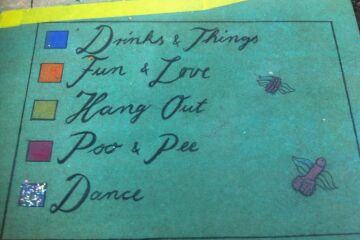 Drinks & Things
Fun & Love
Hang Out
Poo & Pee
Dance